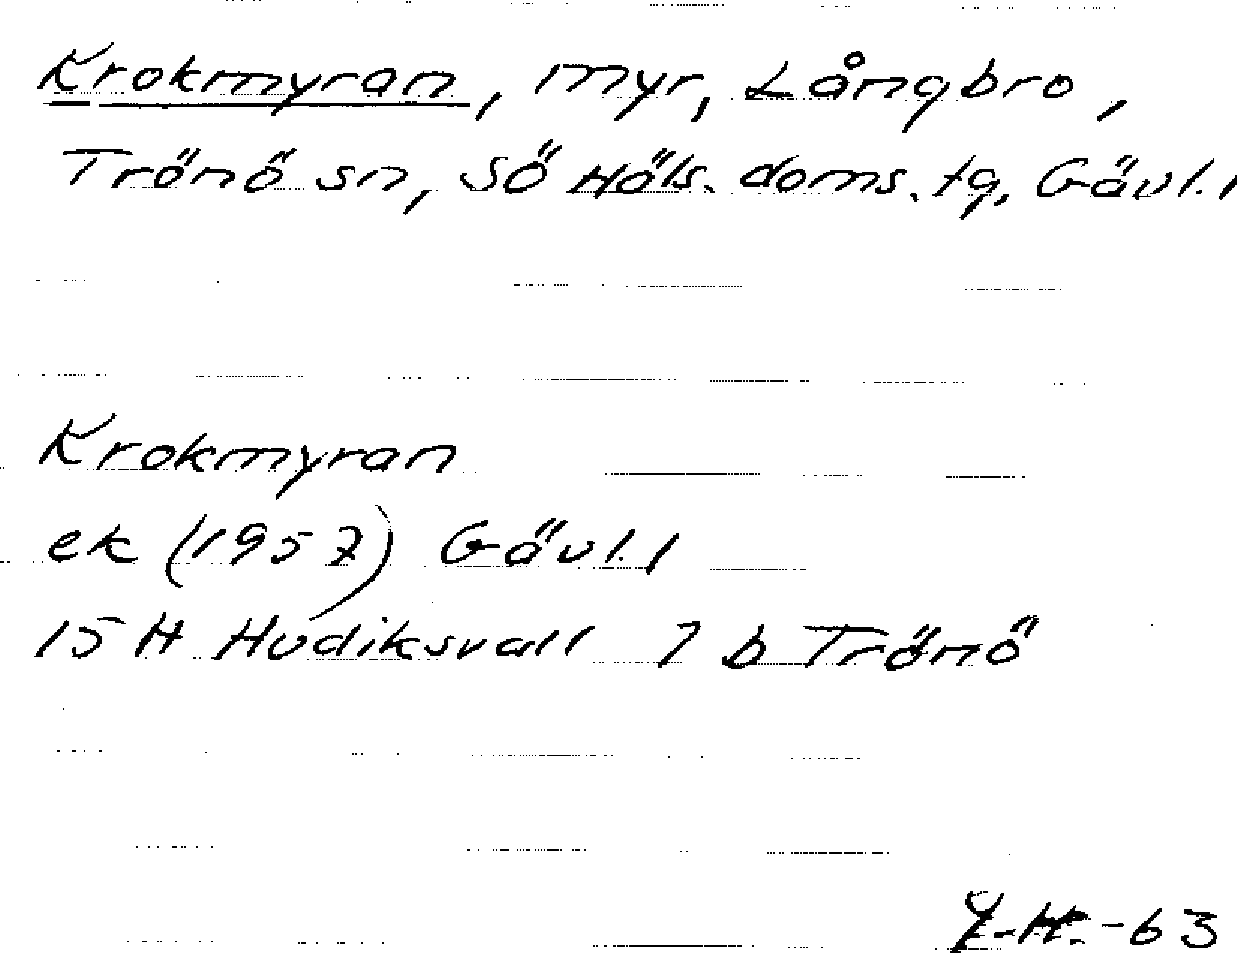 Krokmyran, myr, Långbro,
Trönö sn, SÖ Häls. doms. tg, Gävl. l
Krokmyran
ek (1957) Gävl. l
15 H Hudiksvall 7 b Trönö
-63